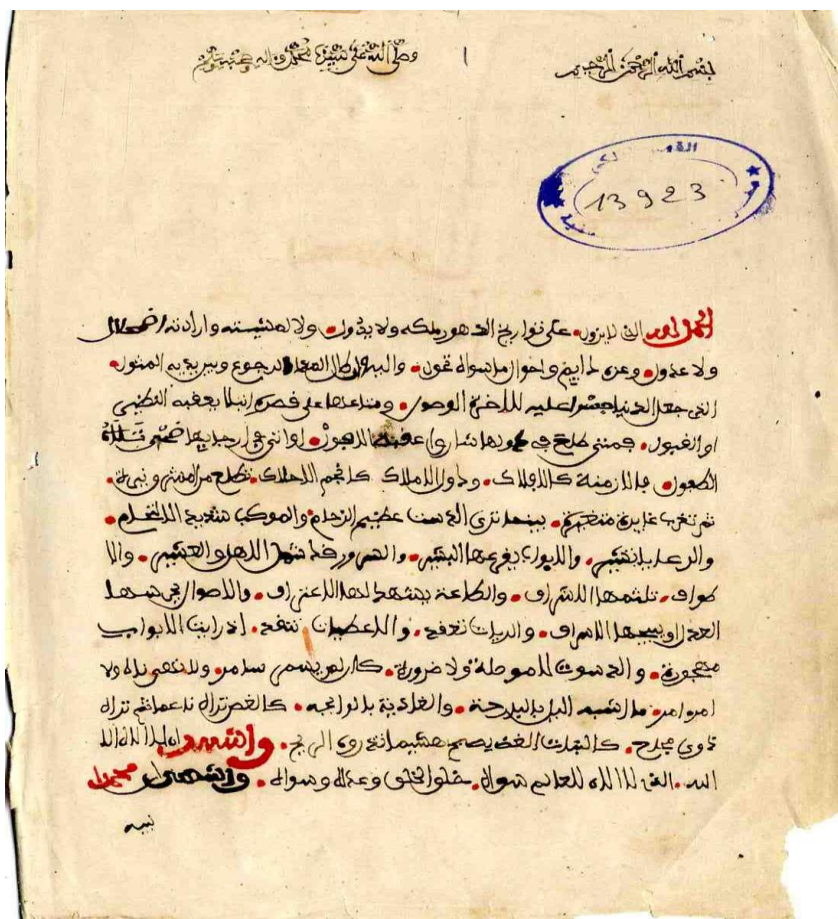 بسم الله الرحمن الرحيم
وصلى الله على سيدنا محمد وآله وصحبه وسلم
13923
الحمد لله الذي لا يزول. على تواريخ الدهور ملكه ولا يدول. ولا لمشيئته وارادته اضمحلال
ولا عدول. وعزه دايم واحوال ما سواه تحول. واليه وان طال المدا الرجوع وبين يديه المثول.
الذي جعل الدنيا جسرا عليه للاخرة الوصول. ومتاعها على قصره ليلا يعقبه
او القبول. فمتى طلع في
الافول. فالازمنة كالافلاك. ودول الاملاك كانجم الاحلاك. تطلع مرة منيرة.
ثم تغرب غايرة متغيرة. بينما ترى الدست عظيم الزحام. والموكب شديد الالتحام.
والرعد. والابواب يقرعها البشير. والسرور قد شمل الاهل والعشير. والا
طراف. تلثمها الاشراف. والطاعة يشهد لها الاعتراف. والاموال يحرسها
العدل او يبيحها الاسراف. والرايات تعقد. والاعطيات تنقد. اذ رايت الابواب
مهجورة. والدسوت لا مؤملة ولا مزورة. كان لم يسمر سامر. ولا نهى ناه ولا
امر امر. ما اشبه الليلة بالبارحة. والغادية بالرايحة. كالغصن تراه ناعما ثم تراه
ذوي. كالنبات الغض يصبح هشيما تذروه الريح. واشهد ان لا اله الا
الله. الذي لا اله للعالم سواه. خلق الخلق وعدله وسواه. واشهد ان محمدا
نبيه